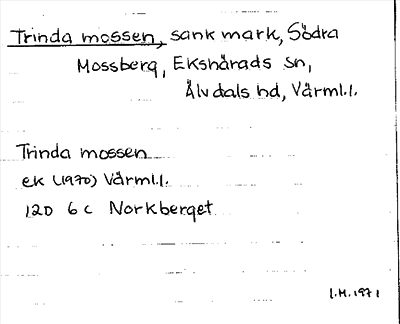 Trinda mossen, sank mark, Södra
Mossberg, Ekshärads sn,
Älvdals hd, Värml.l.
Trinda mossen
ek (1970) Värml.l.
12D 6c Norkberget
I.H. 1971